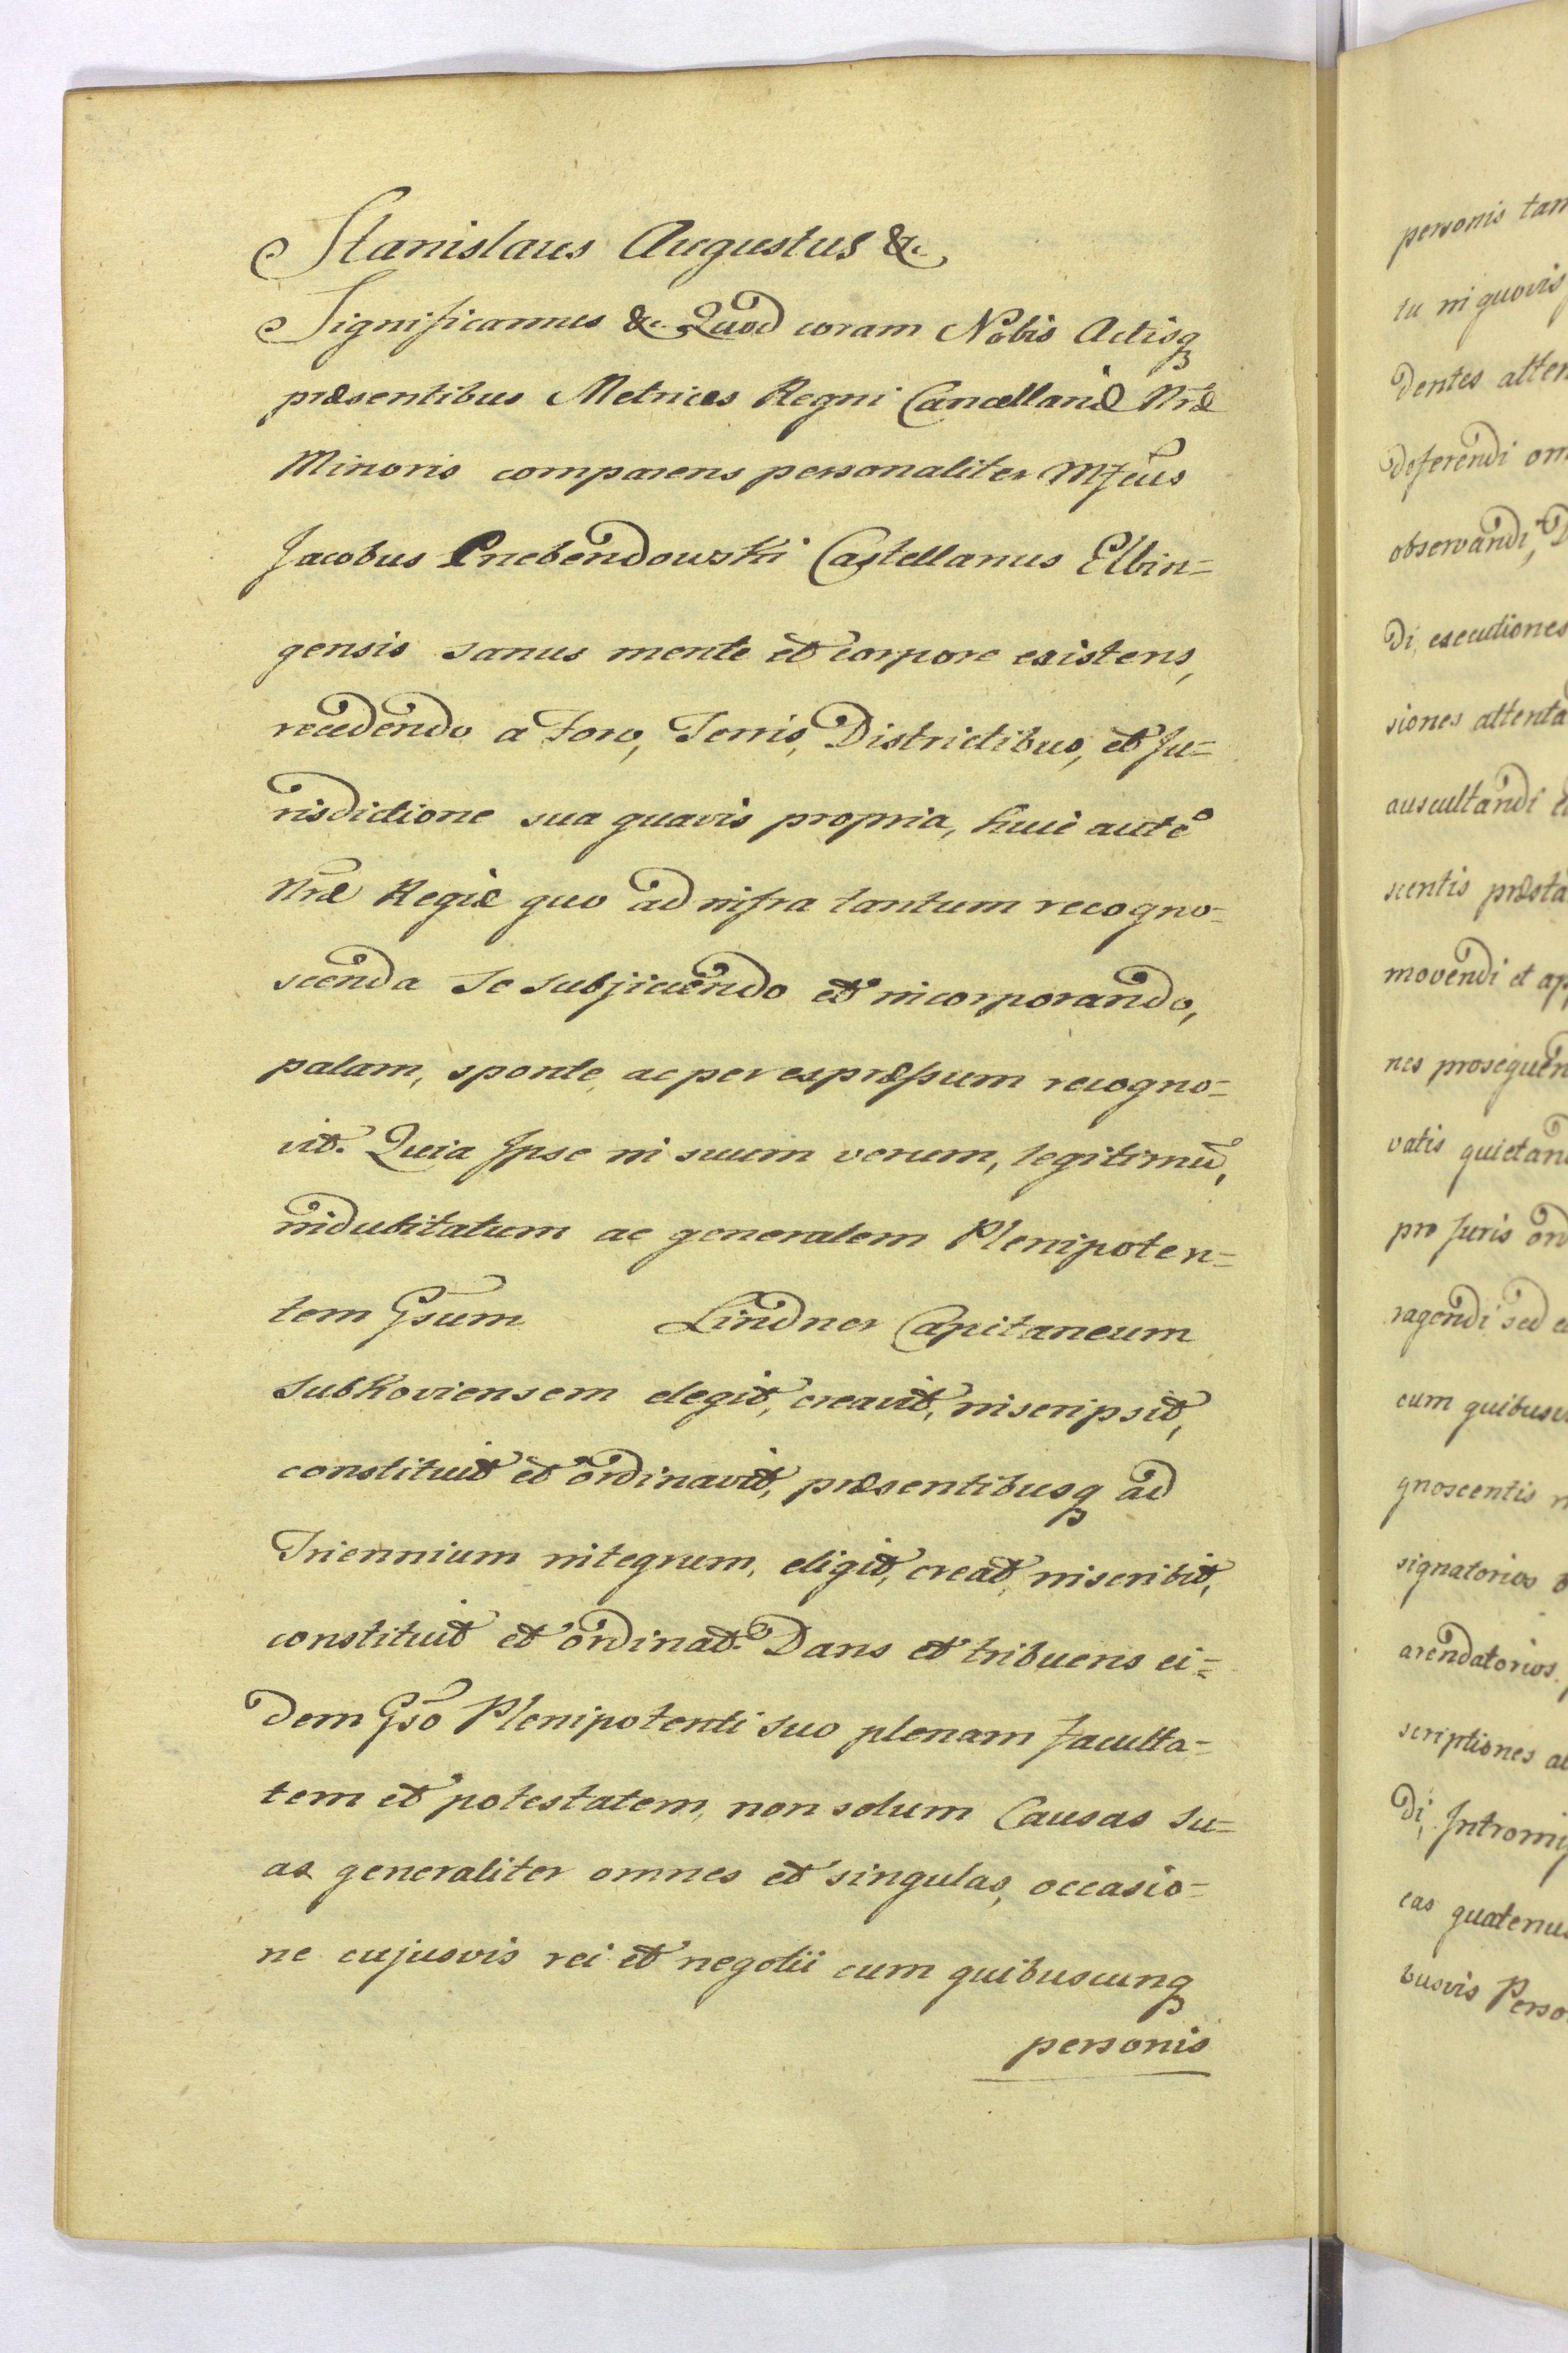 Stanislaus Augustus &c.
Significamus &c. Quod coram Nobis Actisq
præsentibus Metrices Regni Cancellariæ Nræ
Minoris comparens personaliter Mfcus
Jacobus Przebendowski Castellanus Elbin=
gensis sanus mente et corpore existens,
recedendo a Foro, Terris, Districtibus, et Ju=
risdictione sua quavis propria, huic autē
Nræ Regiæ quo ad infra tantum recogno=
scenda se subjiciendo et incorporando,
palam, sponte, ac per expræssum recogno=
vit. Quia Ipse in suum verum, legitimū,
indubitatum ac generalem Plenipoten=
tem Gsum Lindner Capitaneum
Subkoviensem elegit, creavit, inscripsit,
constituit et ordinavit, præsentibusq ad
Triennium integrum, eligit, creat, inscribit,
constituit et ordinat. Dans et tribuens ei=
dem Gso Plenipotenti suo plenam faculta=
tem et potestatem, non solum Causas su=
as generaliter omnes et singulas, occasio=
ne cujusvis rei et negotii cum quibuscunq
personis
personis tam
tu in quovis
dentes atten
deferendi om
observandi, D
di, executiones
siones attenta
auscultandi e
scentis præsta
movendi et ap
nes prosequen
vatis quietan
pro Juris ord
ragendi sed e
cum quibusv
gnoscentis
signatorios
arendatorios
scriptiones a
di, Intromi
cas quatenus
busvis Perso